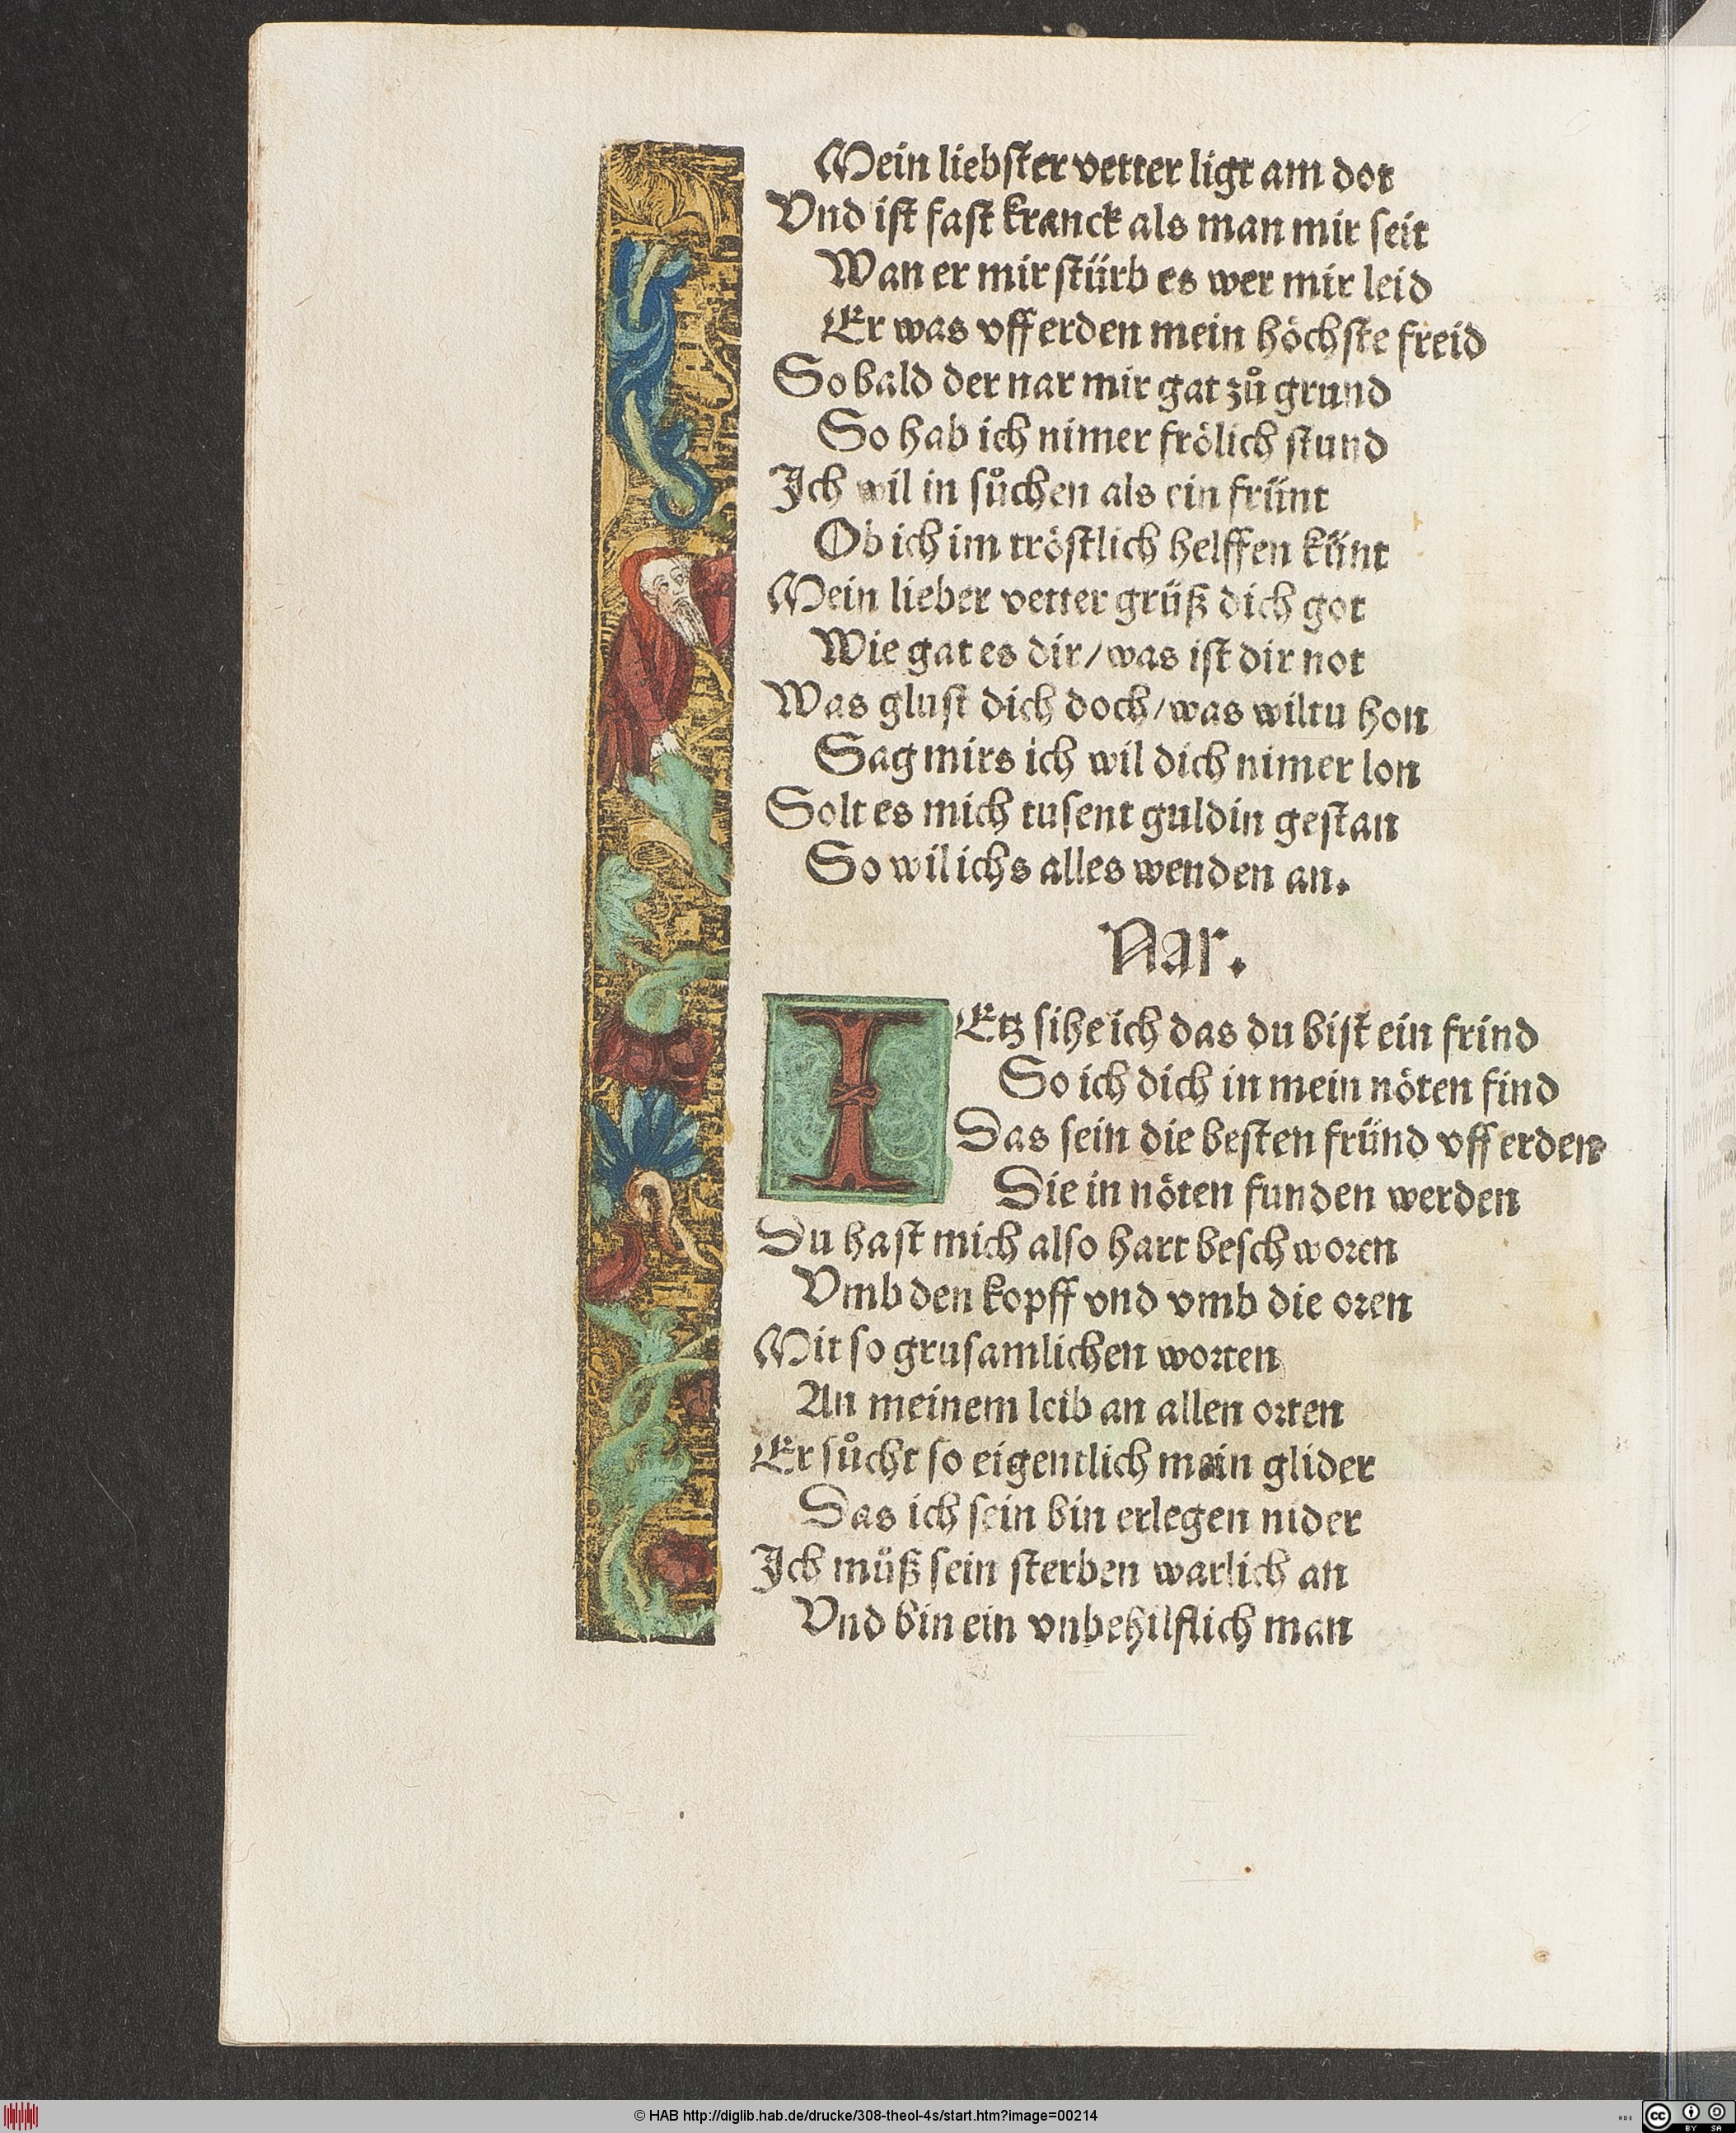 Mein liebſter vetter ligt am dot
Vnd iſt faſt kranck als man mir ſeit
Wan er mir ſtürb es wer mir leid
Er was vff erden mein höchſte freid
So bald der nar mir gat zů grund
So hab ich nimer frölich ſtund
Ich wil in ſůchen als ein frünt
Ob ich im tröſtlich helffen künt
Mein lieber vetter grüß dich got
Wie gat es dir/was iſt dir not
Was gluſt dich doch/was wiltu hon
Sag mirs ich wil dich nimer lon
Solt es mich tuſent guldin geſtan
So wil ichs alles wenden an.
Nar.
IEtz ſihe ich das du biſt ein frind
So ich dich in mein nöten find
Das ſein die beſten fründ vff erden
Die in nöten funden werden
Du haſt mich alſo hart beſchworen
Vmb den kopff vnd vmb die oren
Mit ſo gruſamlichen worten
An meinem leib an allen orten
Er ſůcht ſo eigentlich mein glider
Das ich ſein bin erlegen nider
Ich můß ſein ſterben warlich an
Vnd bin ein vnbehilflich man
© HAB http://diglib.hab.de/drucke/308-theol-4s/start.htm?image=00214
cc BY SA